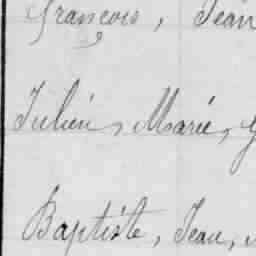 François, Jean
Julien, Marie,
Baptiste, Jean,